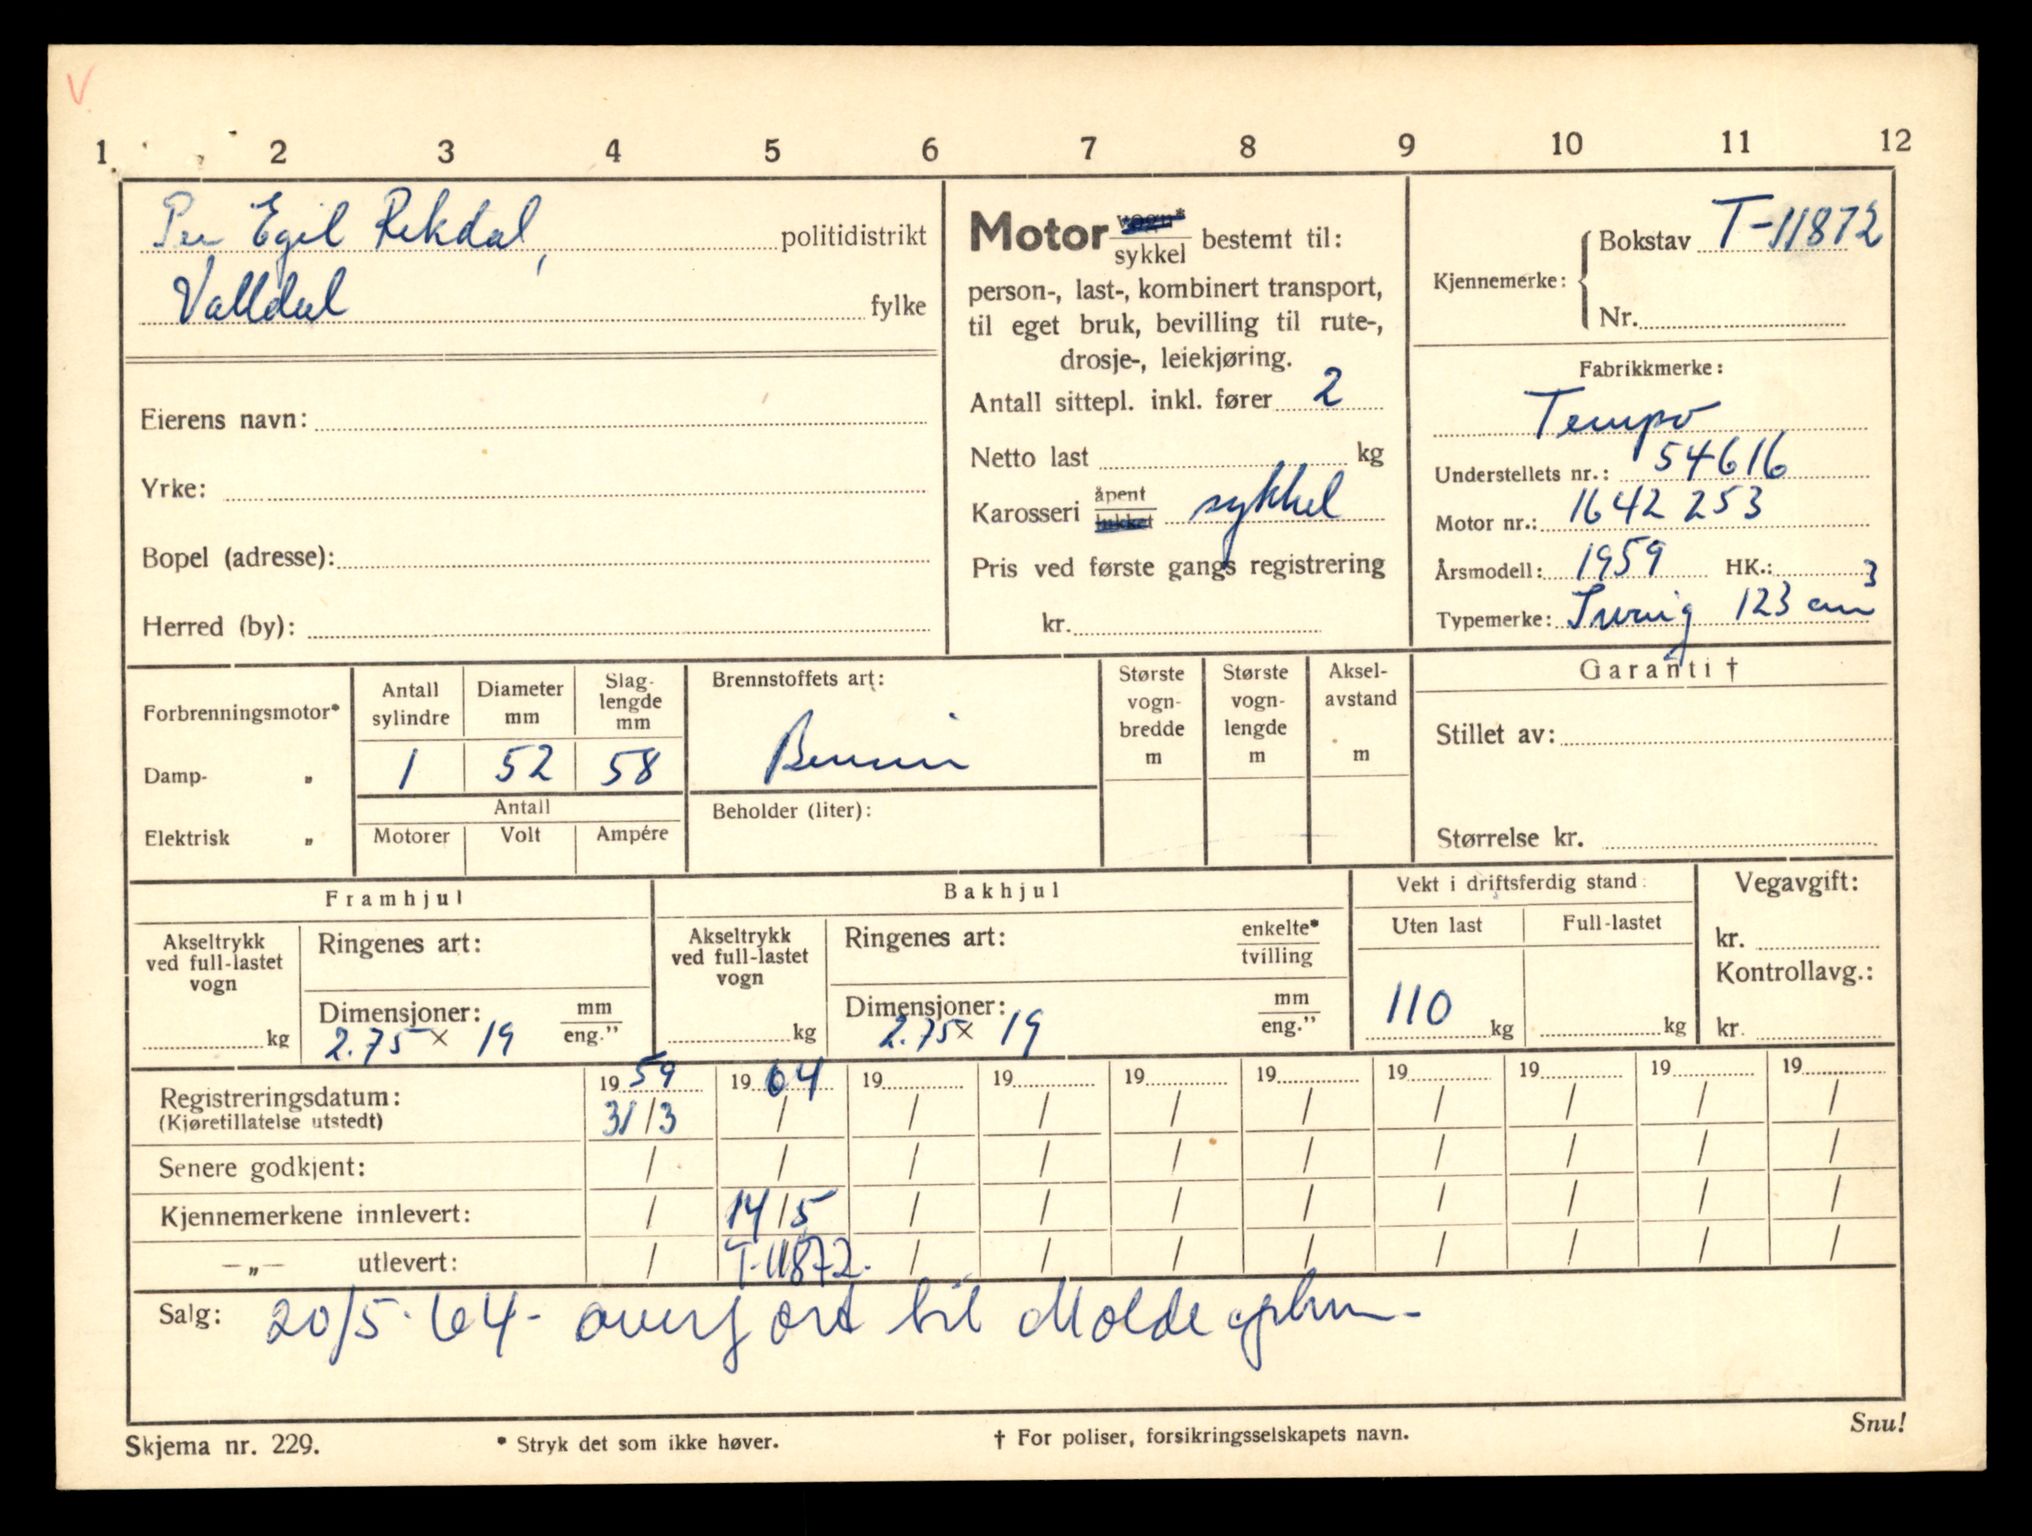 V
1 2 3 4 5 6 7 8 9 10 11 12
Per Egil Rekdal, politidistrikt
Valldal fylke
Eierens navn:
Yrke:
Bopel (adresse):
Herred (by):
Motor vogn* / sykkel bestemt til:
person-, last-, kombinert transport,
til eget bruk, bevilling til rute-,
drosje-, leiekjøring.
Antall sittepl. inkl. fører 2
Netto last kg
Karosseri åpent / lukket sykkel
Pris ved første gangs registrering
kr.
Kjennemerke: Bokstav T-11872
Nr.
Fabrikkmerke:
Tempo
Understellets nr.: 54616
Motor nr.: 1642 253
Årsmodell: 1959 HK.:
Typemerke: Swing 123 cm3
Forbrenningsmotor*
Damp- „
Elektrisk „
Antall sylindre
Diameter mm
Slag-lengde mm
1 52 58
Antall
Motorer Volt Ampére
Brennstoffets art:
Bensin
Beholder (liter):
Største vogn-bredde m
Største vogn-lengde m
Aksel-avstand m
Garanti †
Stillet av:
Størrelse kr.
Framhjul
Akseltrykk
ved full-lastet
vogn
kg
Ringenes art:
Dimensjoner: mm / eng.”
2.75 x 19
Bakhjul
Akseltrykk
ved full-lastet
vogn
kg
Ringenes art: enkelte* / tvilling
Dimensjoner: mm / eng.”
2.75 x 19
Vekt i driftsferdig stand:
Uten last Full-lastet
110 kg kg
Vegavgift:
kr.
Kontrollavg.:
kr.
Registreringsdatum: 1959 1964 19 19 19 19 19 19 19 19
(Kjøretillatelse utstedt) 31/3 / / / / / / / / /
Senere godkjent: / / / / / / / / / /
Kjennemerkene innlevert: / 14/5 / / / / / / / /
—„— utlevert: / T-11872. / / / / / / / /
Salg: 20/5-64- overført til Molde
Skjema nr. 229. * Stryk det som ikke høver. † For poliser, forsikringsselskapets navn. Snu!